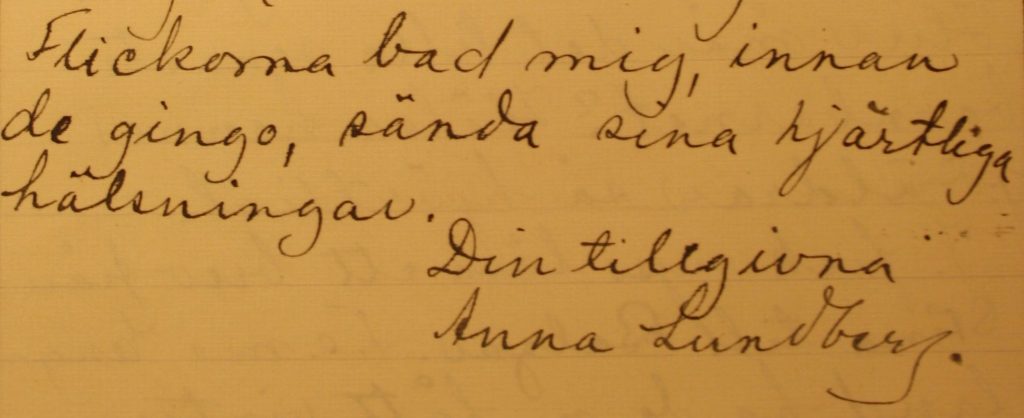 Flickorna bad mig, innan
de gingo, sända sina hjärtliga
hälsningar.
Din tillgivna
Anna Lundberg.